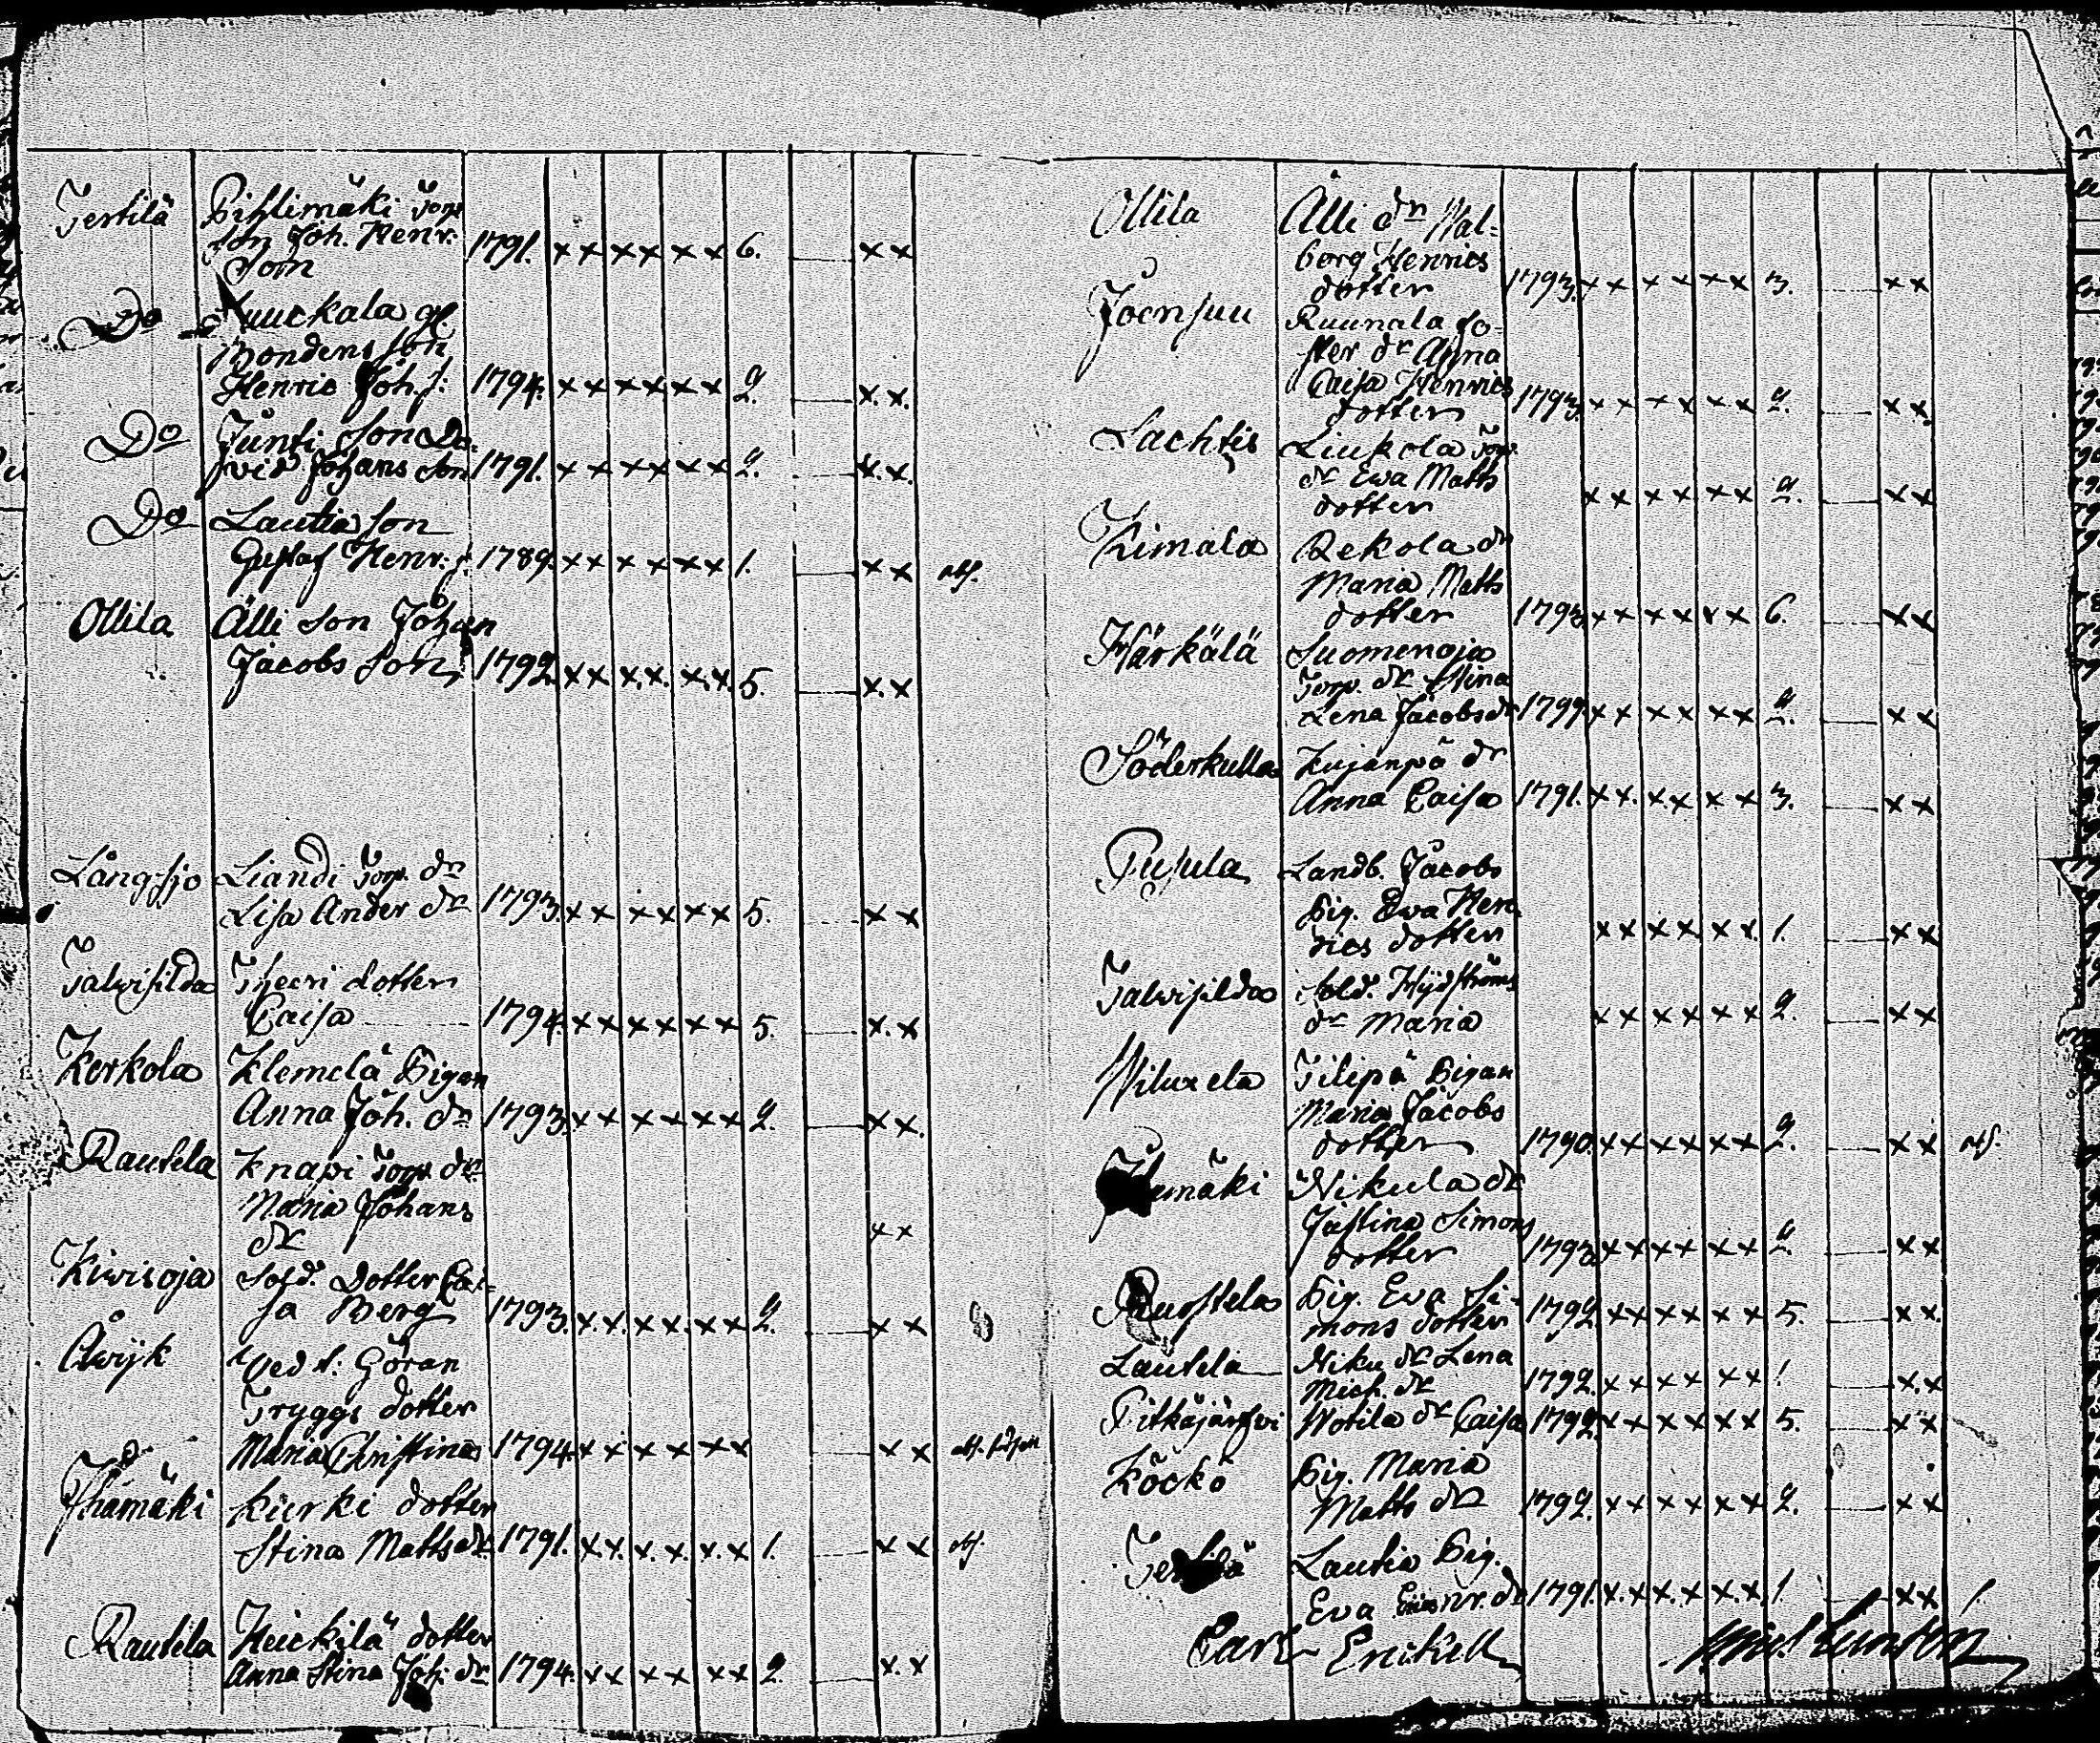 Tertilä Pihlimäki Torp
son Joh. Henr.
Son 1791. xx xx xx 6. xx
Do Kuuckala gl.
Bondens son
Henric Joh. s: 1794. xx xx xx 2. x.x.
Do Junti Son Da-
vid Johans Son 1791. xx xx xx 2. x.x.
Do Lautia son
Gustaf Henr: s. 1789. xx xx xx 1. xx abs.
Ollila Älli Son Johan
Jacobs Son 1792 xx x.x. x.x. 5. x.x
Långsjo Liandi Torp. dr
Lisa Ander dr 1793. xx xx xx 5. xx
Talwisilda dotter
Caisa 1794 xx xx xx 5. x.x
Kerkola Klemelä Pigan
Anna Joh. dr 1793. xx xx xx 2. xx.
Rautela Knapi Torp. dr
Maria Johans
dr xx
Kiwisoja Sold. Dotter Cai-
sa Berg 1793. x.x. xx. xx 2. xx
Åwijk Göran
Tryggs dotter
Maria Christina 1794. xx xx xx xx
Ihämäki Kurki dotter
Stina Matts dr. 1791. x.x. x.x. x.x 1. xx abs.
Rautela Heickilä dotter
Anna Stina Joh. dr 1794. xx xx xx 2. x.x
Ollila Älli dr Wal-
borg Henrics
dotter 1793. xx xx xx 3. xx
Joensuu Ruunala So-
Anna
Caisa Henrics
dotter 1793. xx xx xx 2. xx
Lachtis Liukola Torp.
dr Ewa Matts
dotter xx xx xx 2. xx
Kimala Rekola dr
Maria Matts
dotter 1793 xx xx xx 6. xx
Härkälä Suomenoja
Torp. dr Stina
Lena Jacobs dr 179 xx xx xx 2. xx
Söderkulla Kujanpä dr
Anna Caisa 1791. xx. xx xx 3. xx
Pusula Landb. Jacobs
Pig. Ewa Hen-
rics dotter xx xx xx. 1. xx
Talwisilda Sold. Hydströms
dr Maria xx xx xx 2. xx
Wiluxela Filipä Pigan
Maria Jacobs
dotter 1790. xx xx xx 2. xx abs.
Nikula dr
Justina Simons
dotter 1793 xx xx xx 2. xx
Ruostela Pig. Eva Si-
mons dotter 1792 xx xx xx 5. xx.
Lautela Niku dr Lena
Mich. dr 1792. xx xx xx 1. x.x
Pitkäjärfwi Wotila dr Caisa 1792 xx xx xx 5. xx
Köckö Pig. Maria
Matts dr 1792. xx xx xx 2. xx
Tertilä Lautia Pig.
Eva Henr. dr 1791. x.x. x.x. x.x. 1. xx 1.
Carl Enckell